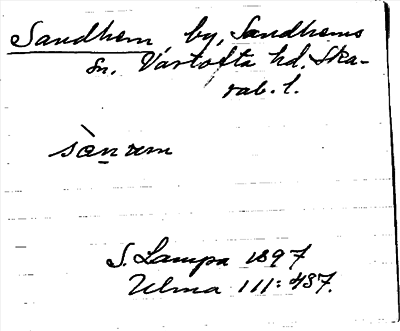 Sandhem, by, Sandhems
sn. Vartofta hd. Ska-
rab. l.
sæ̀n rem
S. Lampa 1897
Ulma 111:437.